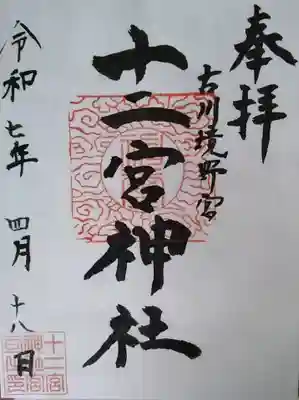 奉拝
古川境野宮
十二宮神社
令和七年 四月 十八日